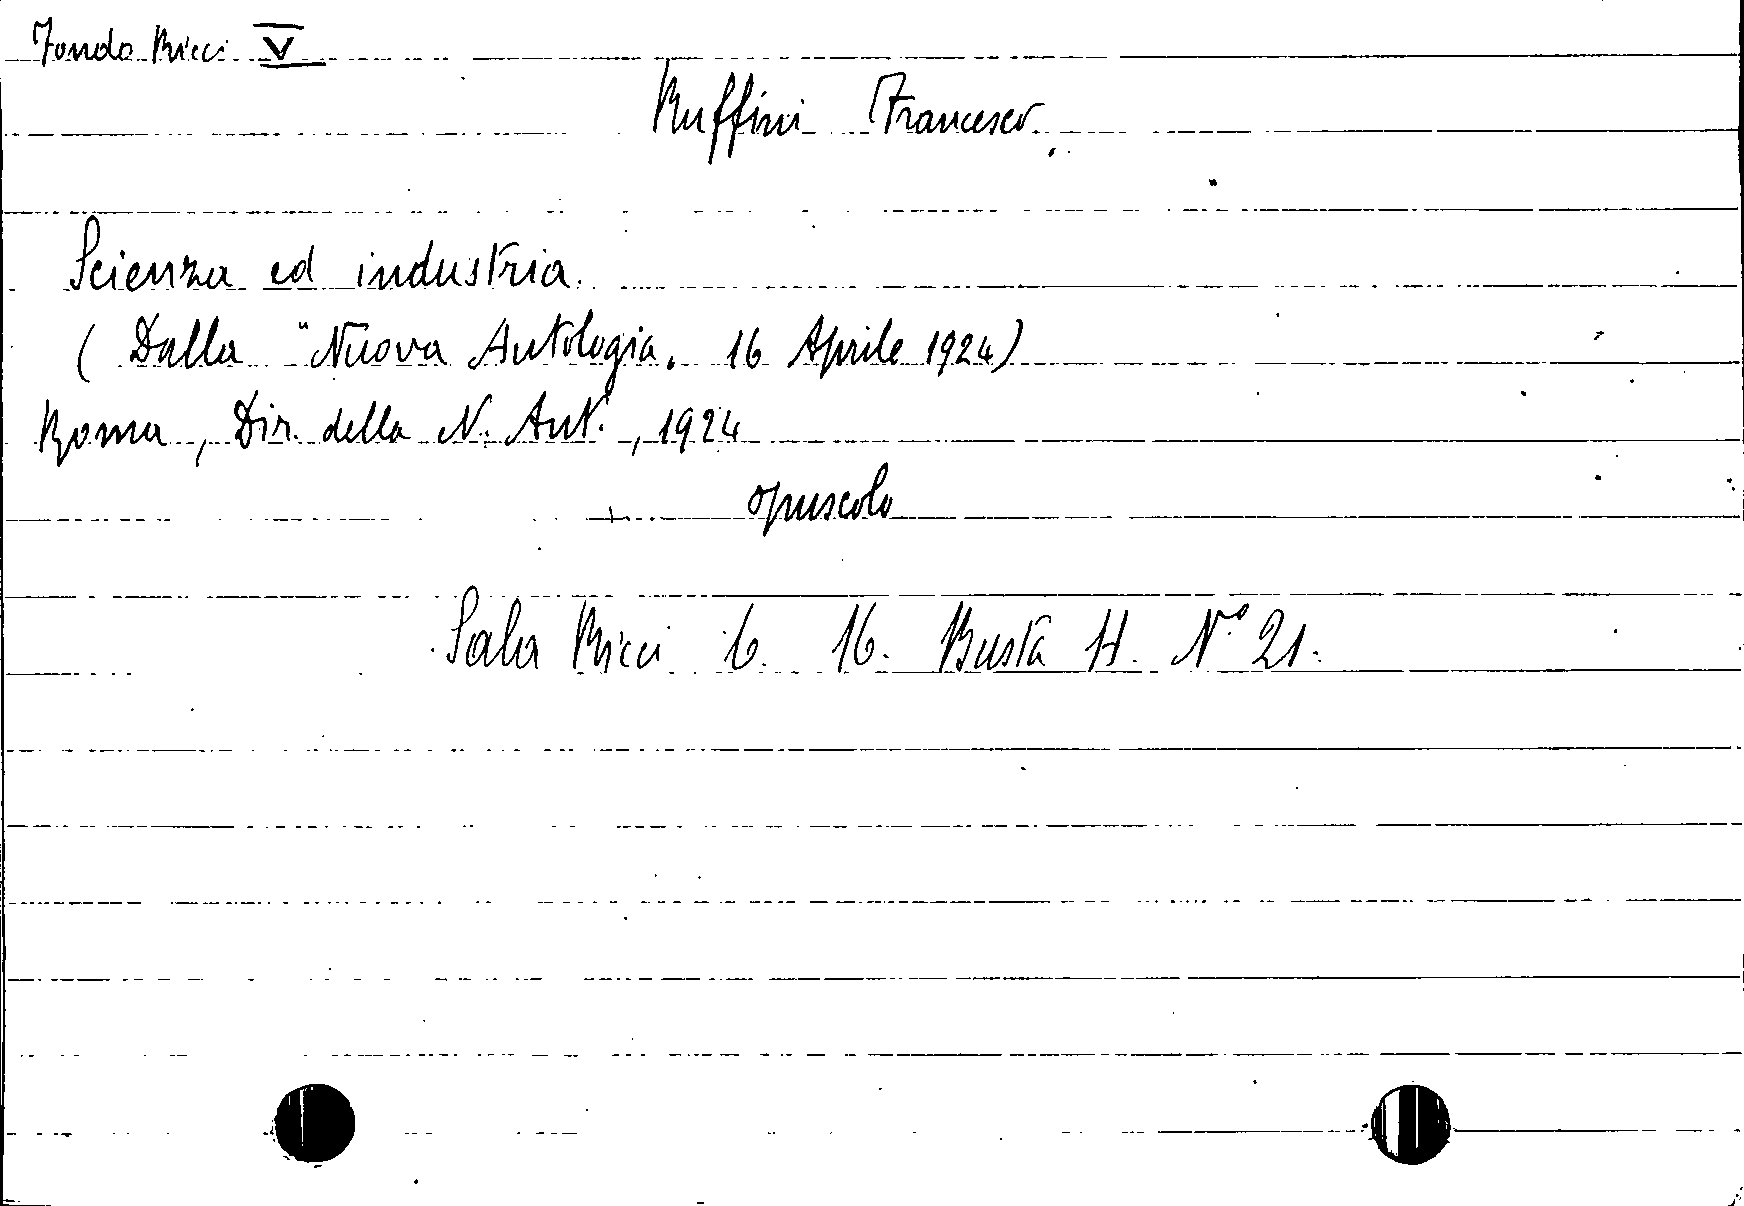 Fondo Ricci V
Ruffini Francesco
Scienza ed industria.
( Dalla "Nuova Antologia. 16 Aprile 1924)
Roma, Dir. della N. Ant., 1924
opuscolo
Sala Ricci 6. 16. Busta H. N° 21.